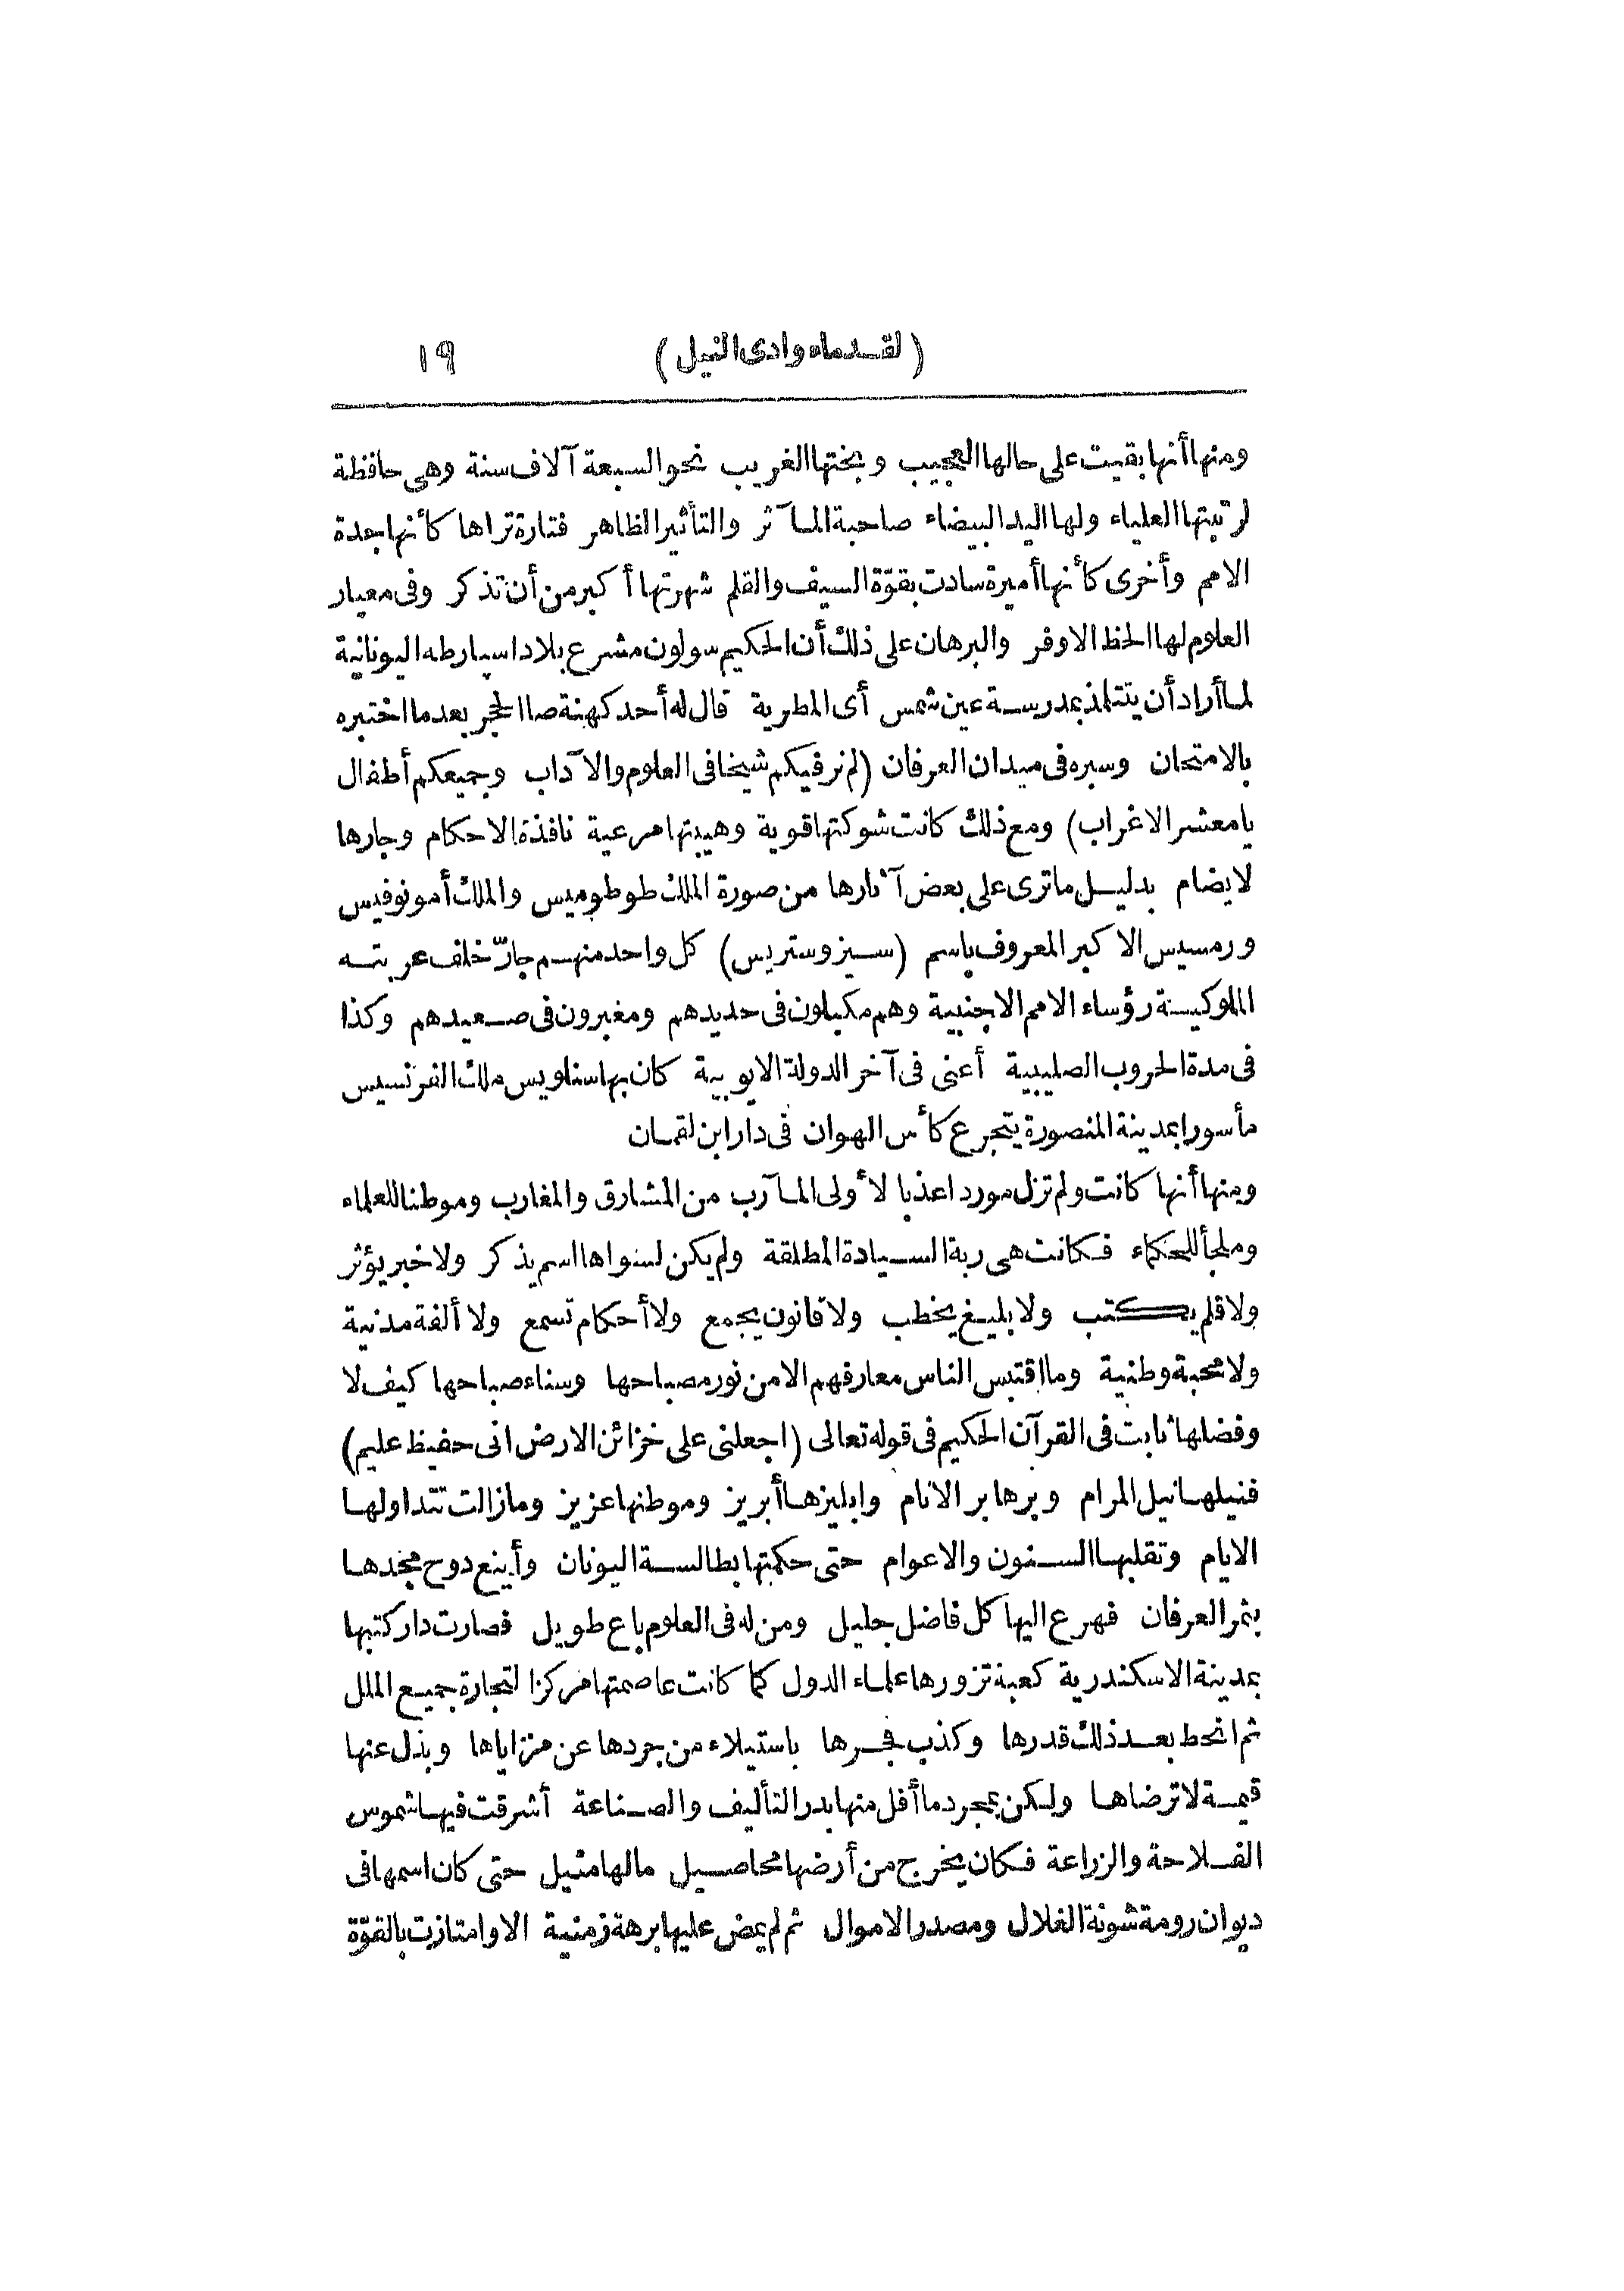 (لقدماء وادى النيل) ١٩
ومنها أنها بقيت على حالها العجيب وبختها الغريب نحو السبعة آلاف سنة وهى حافظة
لرتبتها العلياء ولها اليد البيضاء صاحبة المآثر والتأثير الظاهر فتارة تراها كأنها جدة
الامم وأخرى كأنها أميرة سادت بقوّة السيف والقلم شهرتها أكبر من أن تذكر وفى معيار
العلوم لها الحظ الاوفر والبرهان على ذلك أن الحكيم سولون مشرع بلاد اسپارطه اليونانية
لما أراد أن يتتلمذ بمدرسة عين شمس أى المطرية قال له أحد كهنة صا الحجر بعدما اختبره
بالامتحان وسبره فى ميدان العرفان (لم نر فيكم شيخا فى العلوم والآداب وجميعكم أطفال
يا معشر الاغراب) ومع ذلك كانت شوكتها قوية وهيبتها مرعية نافذة الاحكام وجارها
لا يضام بدليل ما ترى على بعض آثارها من صورة الملك طوطوميس والملك أمونوفيس
ورمسيس الاكبر المعروف باسم (سيزوستريس) كل واحد منهم جارّ خلف عربته
الملوكية رؤساء الامم الاجنبية وهم مكبلون فى حديدهم ومغبرون فى صعيدهم وكذا
فى مدة الحروب الصليبية أعنى فى آخر الدولة الايوبية كان بها سنلويس ملك الفرنسيس
مأسورا بمدينة المنصورة يتجرع كأس الهوان فى دار ابن لقمان
ومنها أنها كانت ولم تزل موردا عذبا لأولى المآرب من المشارق والمغارب وموطنا للعلماء
وملجأ للحكماء فكانت هى ربة السيادة المطلقة ولم يكن لسواها اسم يذكر ولا خبر يؤثر
ولا قلم يكتب ولا بليغ يخطب ولا قانون يجمع ولا أحكام تسمع ولا ألفة مدنية
ولا محبة وطنية وما اقتبس الناس معارفهم الا من نور مصباحها وسناء صباحها كيف لا
وفضلها ثابت فى القرآن الحكيم فى قوله تعالى (اجعلنى على خزائن الارض انى حفيظ عليم)
فنيلها نيل المرام وبرها بر الانام وابليزها أبريز وموطنها عزيز ومازالت تتداولها
الايام وتقلبها السنون والاعوام حتى حكمتها بطالسة اليونان وأينع دوح مجدها
بثمر العرفان فهرع اليها كل فاضل جليل ومن له فى العلوم باع طويل فصارت دار كتبها
بمدينة الاسكندرية كعبة تزورها علماء الدول كما كانت عاصمتها مركزا لتجارة جميع الملل
ثم انحط بعد ذلك قدرها وكذب فجرها باستيلاء من جردها عن مزاياها وبذل عنها
قيمة لا ترضاها ولكن بمجرد ما أفل منها بدر التأليف والصناعة أشرقت فيها شموس
الفلاحة والزراعة فكان يخرج من أرضها محاصيل مالها مثيل حتى كان اسمها فى
ديوان رومة شونة الغلال ومصدر الاموال ثم لم يمض عليها برهة زمنية الا وامتازت بالقوّة